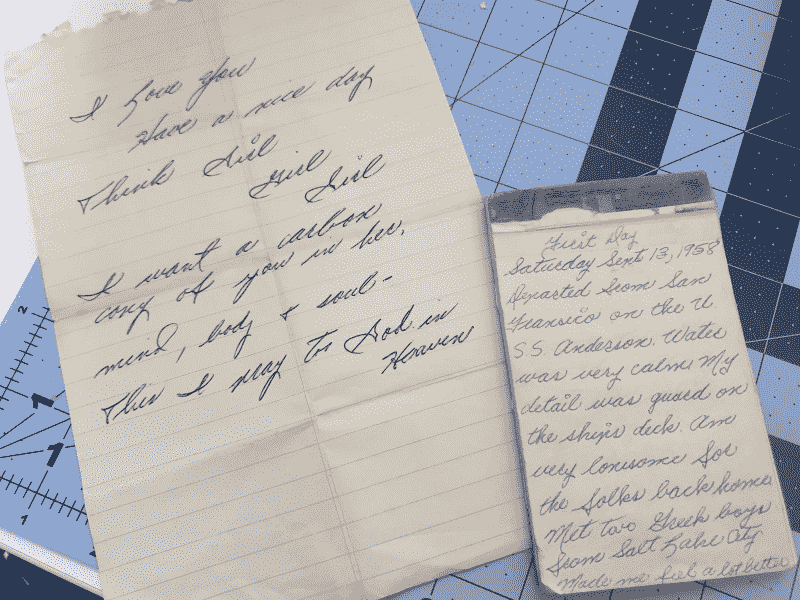 I Love you
Have a nice day
Think Girl
Girl
Girl
I want a carbon
copy of you in her,
mind, body & soul-
This I pray to God in
Heaven
First Day
Saturday Sept 13, 1958
Departed from San
Fransico on the U.
S.S. Anderson. Water
was very calm. My
detail was guard on
the ship's deck. Am
very lonesome for
the folks back home
Met two Greek boys
from Salt Lake City
Made me feel a lot better
2
1
1
1